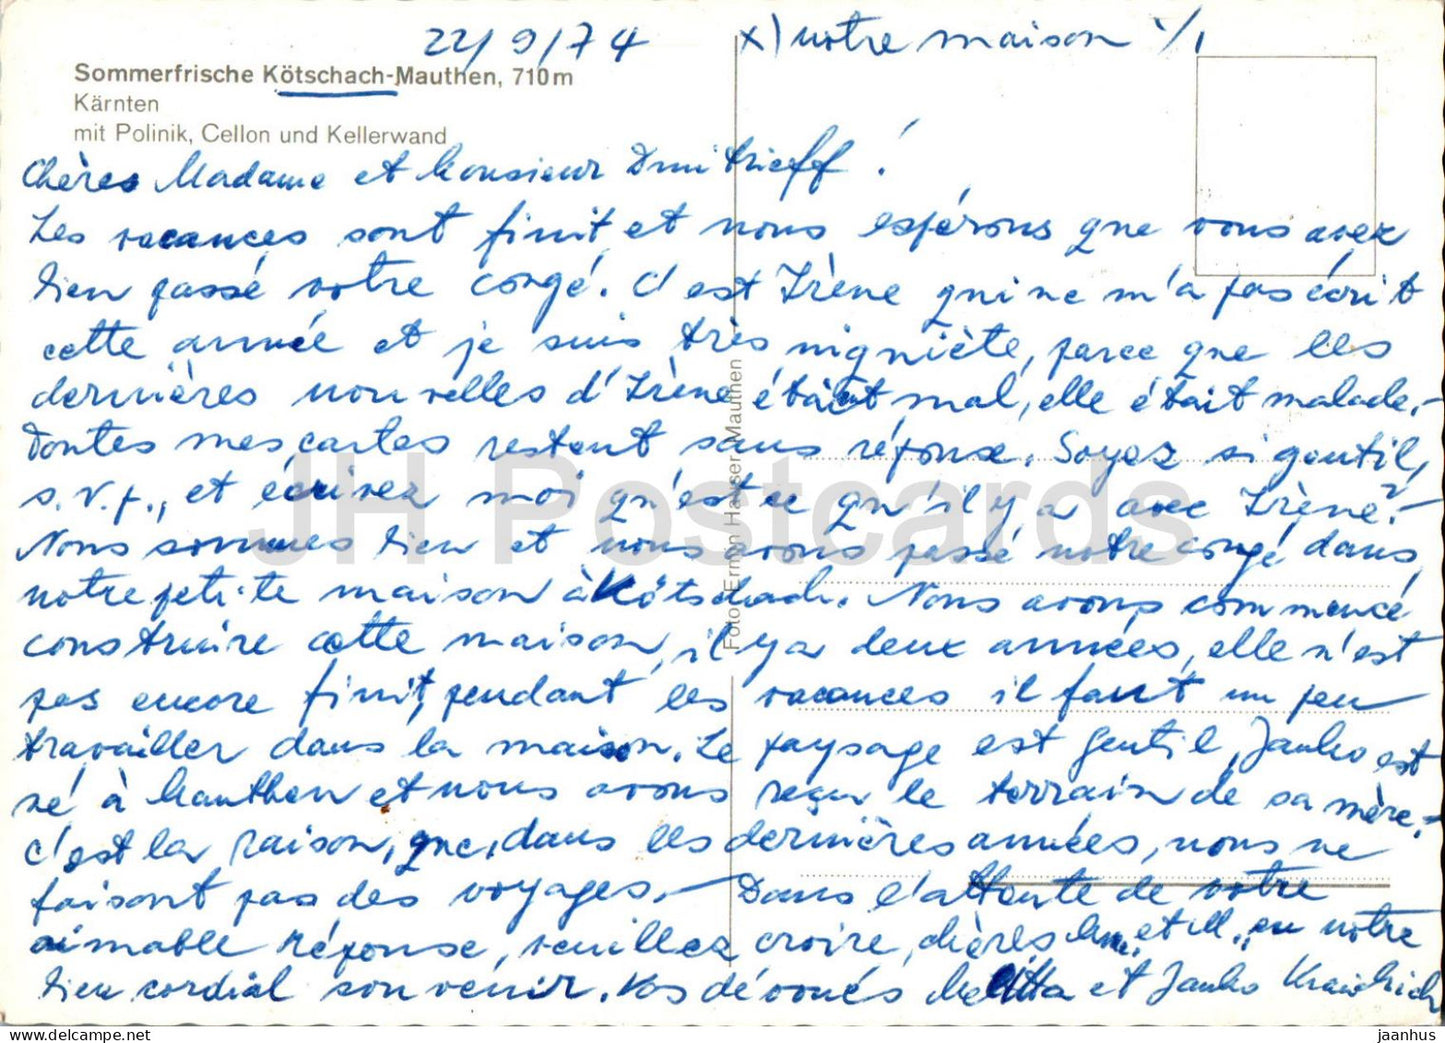 22/9/74
x) notre maison 1/1
Sommerfrische Kötschach-Mauthen, 710 m
Kärnten
mit Polinik, Cellon und Kellerwand
Chères Madame et Monsieur Dmitrieff!
Les vacances sont finit et nous espérons que vous avez
bien passé votre congé. C'est Irène qui ne m'a pas écrit
cette année et je suis très nigniète, parce que les
dernières nouvelles d'Irène était mal, elle était malade.-
Toutes mes cartes restent sans réponse. Soyez si gentil,
s.v.p., et écrivez moi qu'est ce qu'il y a avec Irène?-
Nous sommes bien et nous avons passé notre congé dans
notre petite maison à Kötschach. Nous avons commencé
construire cette maison, il y a deux années, elle n'est
pas encore finit, pendant les vacances il faut un peu
travailler dans la maison. Le paysage est gentil, Janko est
né à Mauthen et nous avons reçu le terrain de sa mère.-
C'est la raison, que, dans les dernières années, nous ne
faisont pas des voyages.- Dans l'attente de votre
aimable réponse, veuillez croire, chères Mme. et M., en notre
bien cordial souvenir. Vos dévoués Melitta et Janko
Foto Erwin Hauser, Mauthen
JH Postcards
delcampe.net
jaanhus